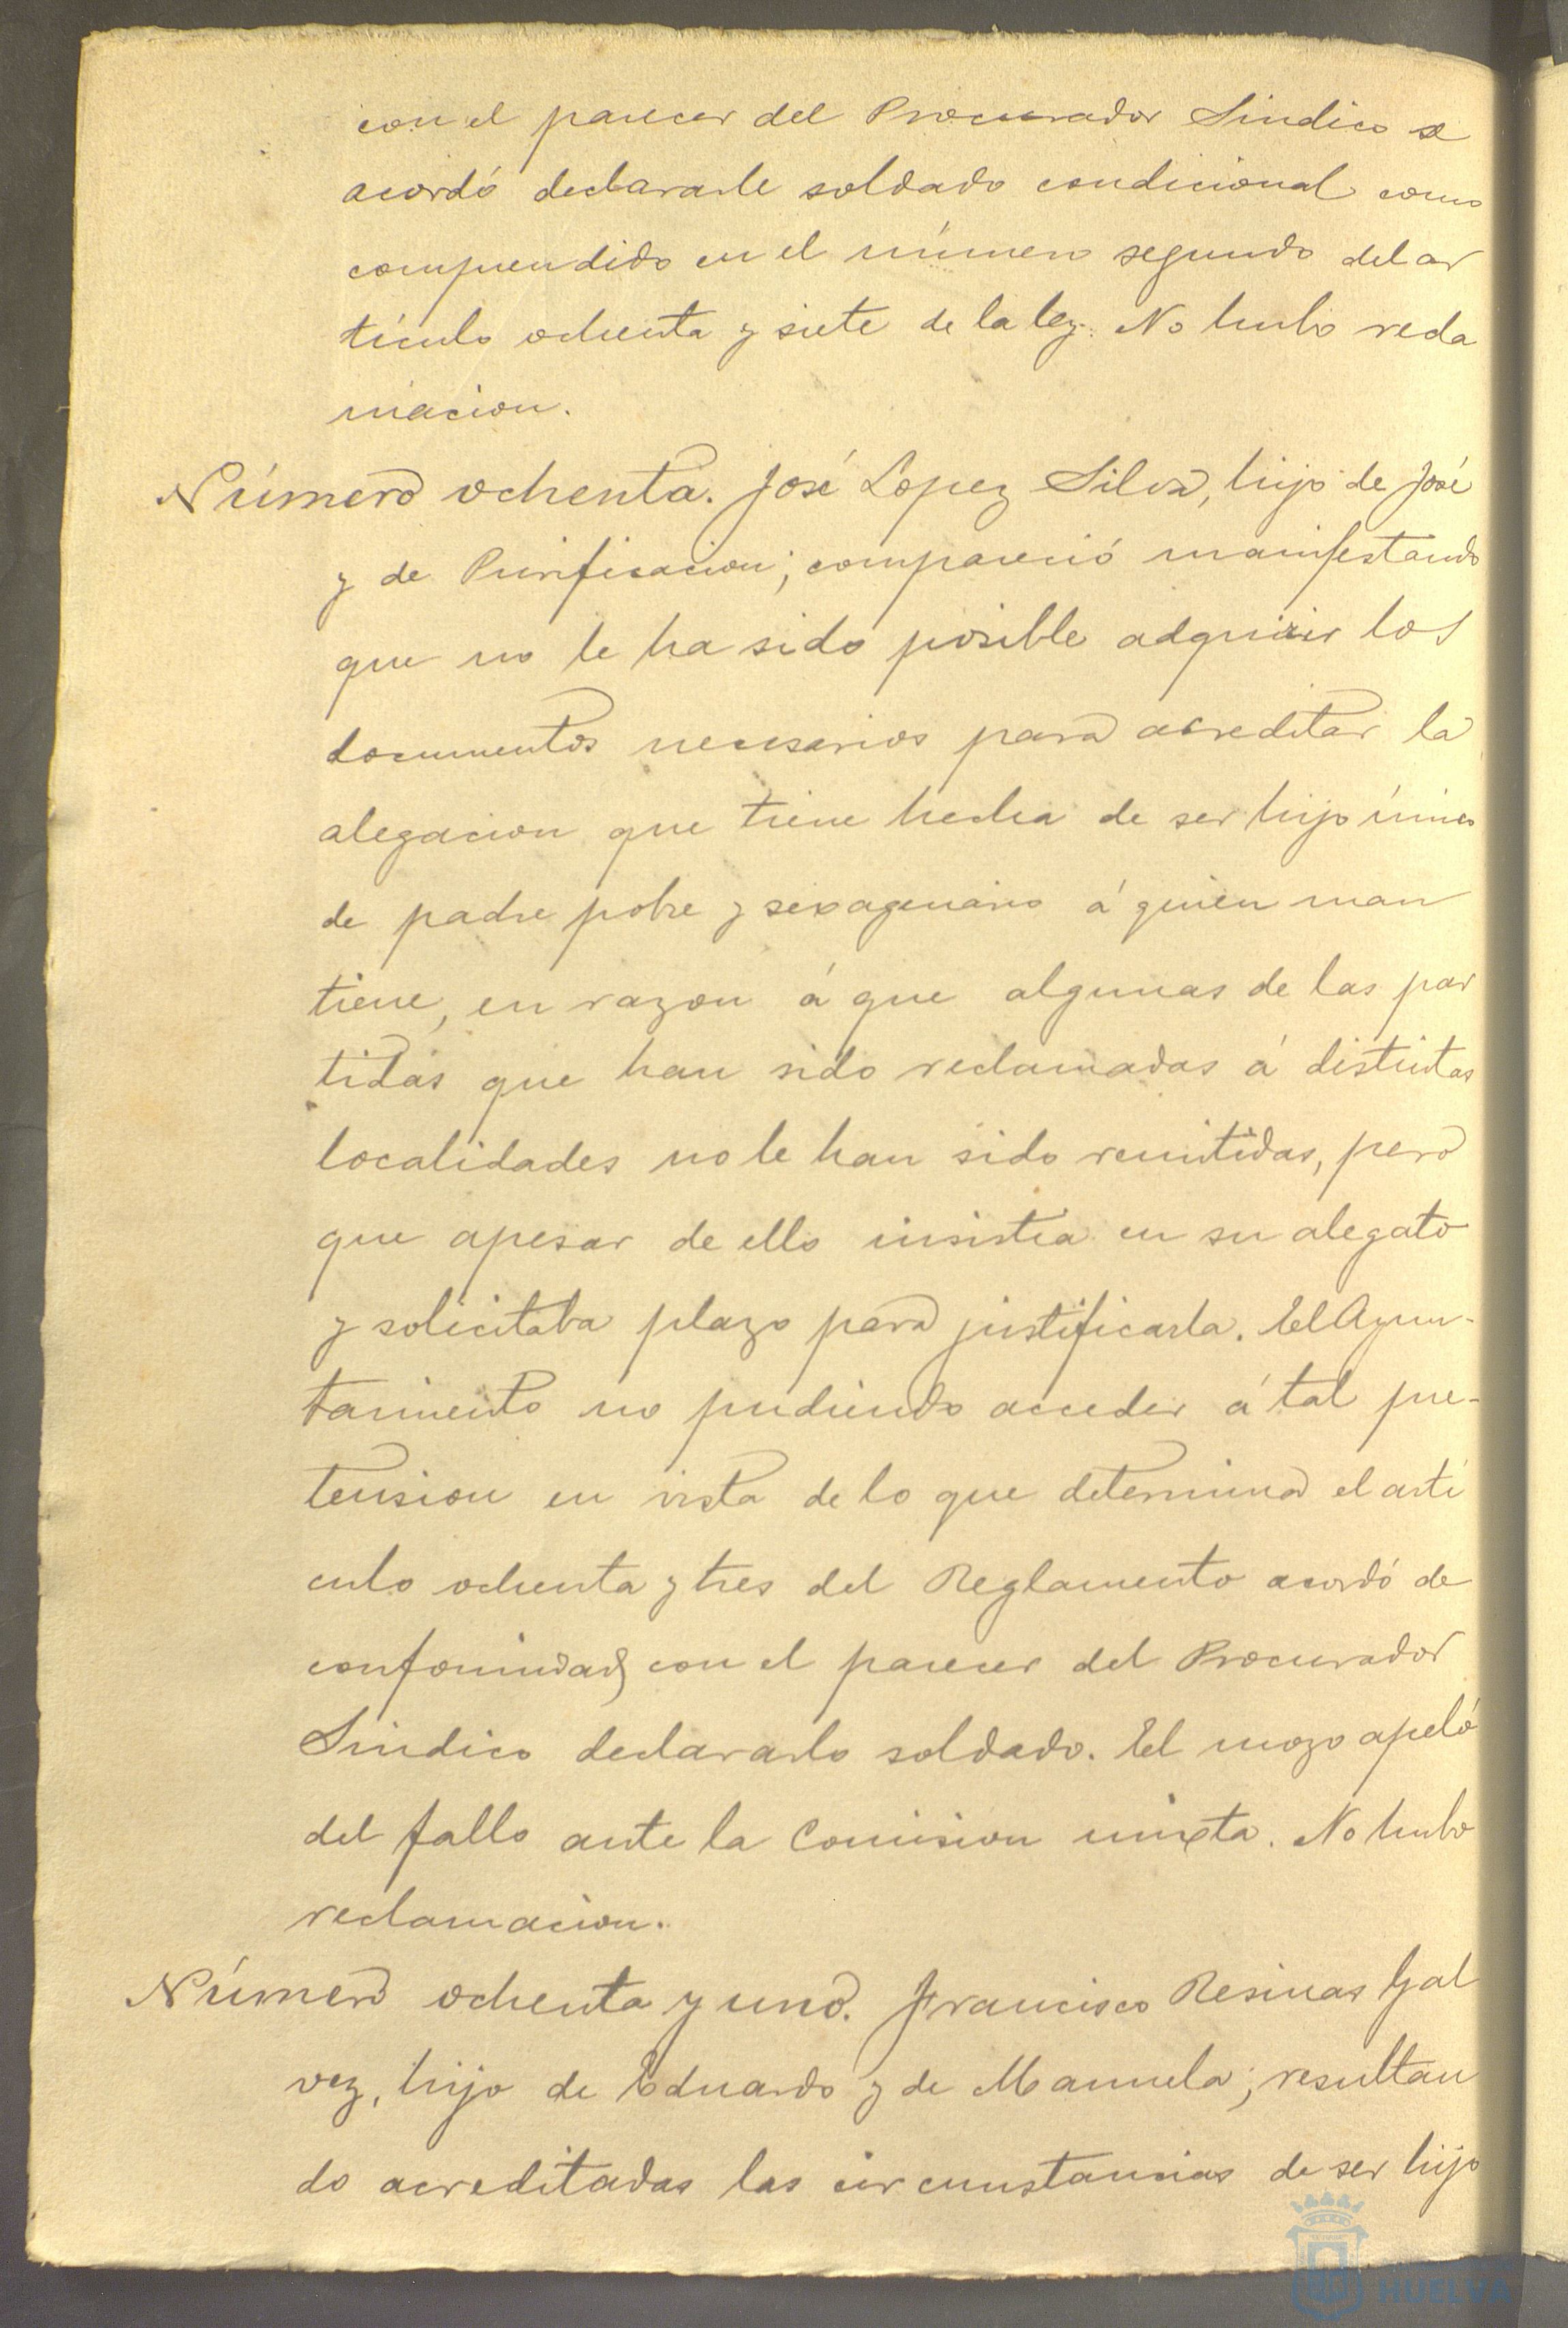 con el parecer del Procurador Sindico se
acordó declararle soldado condicional como
comprendido en el número segundo del ar
tículo ochenta y siete de la ley. No hubo recla
macion.
Número ochenta. José Lopez Silva, hijo de José
y de Purificacion; compareció manifestando
que no le ha sido posible adquirir los
documentos necesarios para acreditar la
alegacion que tiene hecha de ser hijo único
de padre pobre y sexagenario á quien man
tiene, en razon á que algunas de las par
tidas que han sido reclamadas á distintas
localidades no le han sido remitidas, pero
que apesar de ello insistia en su alegato
y solicitaba plazo para justificarla. El Ayun-
tamiento no pudiendo acceder á tal pre-
tension en vista de lo que determina el artí
culo ochenta y tres del Reglamento acordó de
conformidad con el parecer del Procurador
Sindico declararlo soldado. El mozo apeló
del fallo ante la Comision mixta. No hubo
reclamacion.
Número ochenta y uno. Francisco Resinas Gal
vez, hijo de Eduardo y de Manuela; resultan
do acreditadas las circunstancias de ser hijo
HUELVA